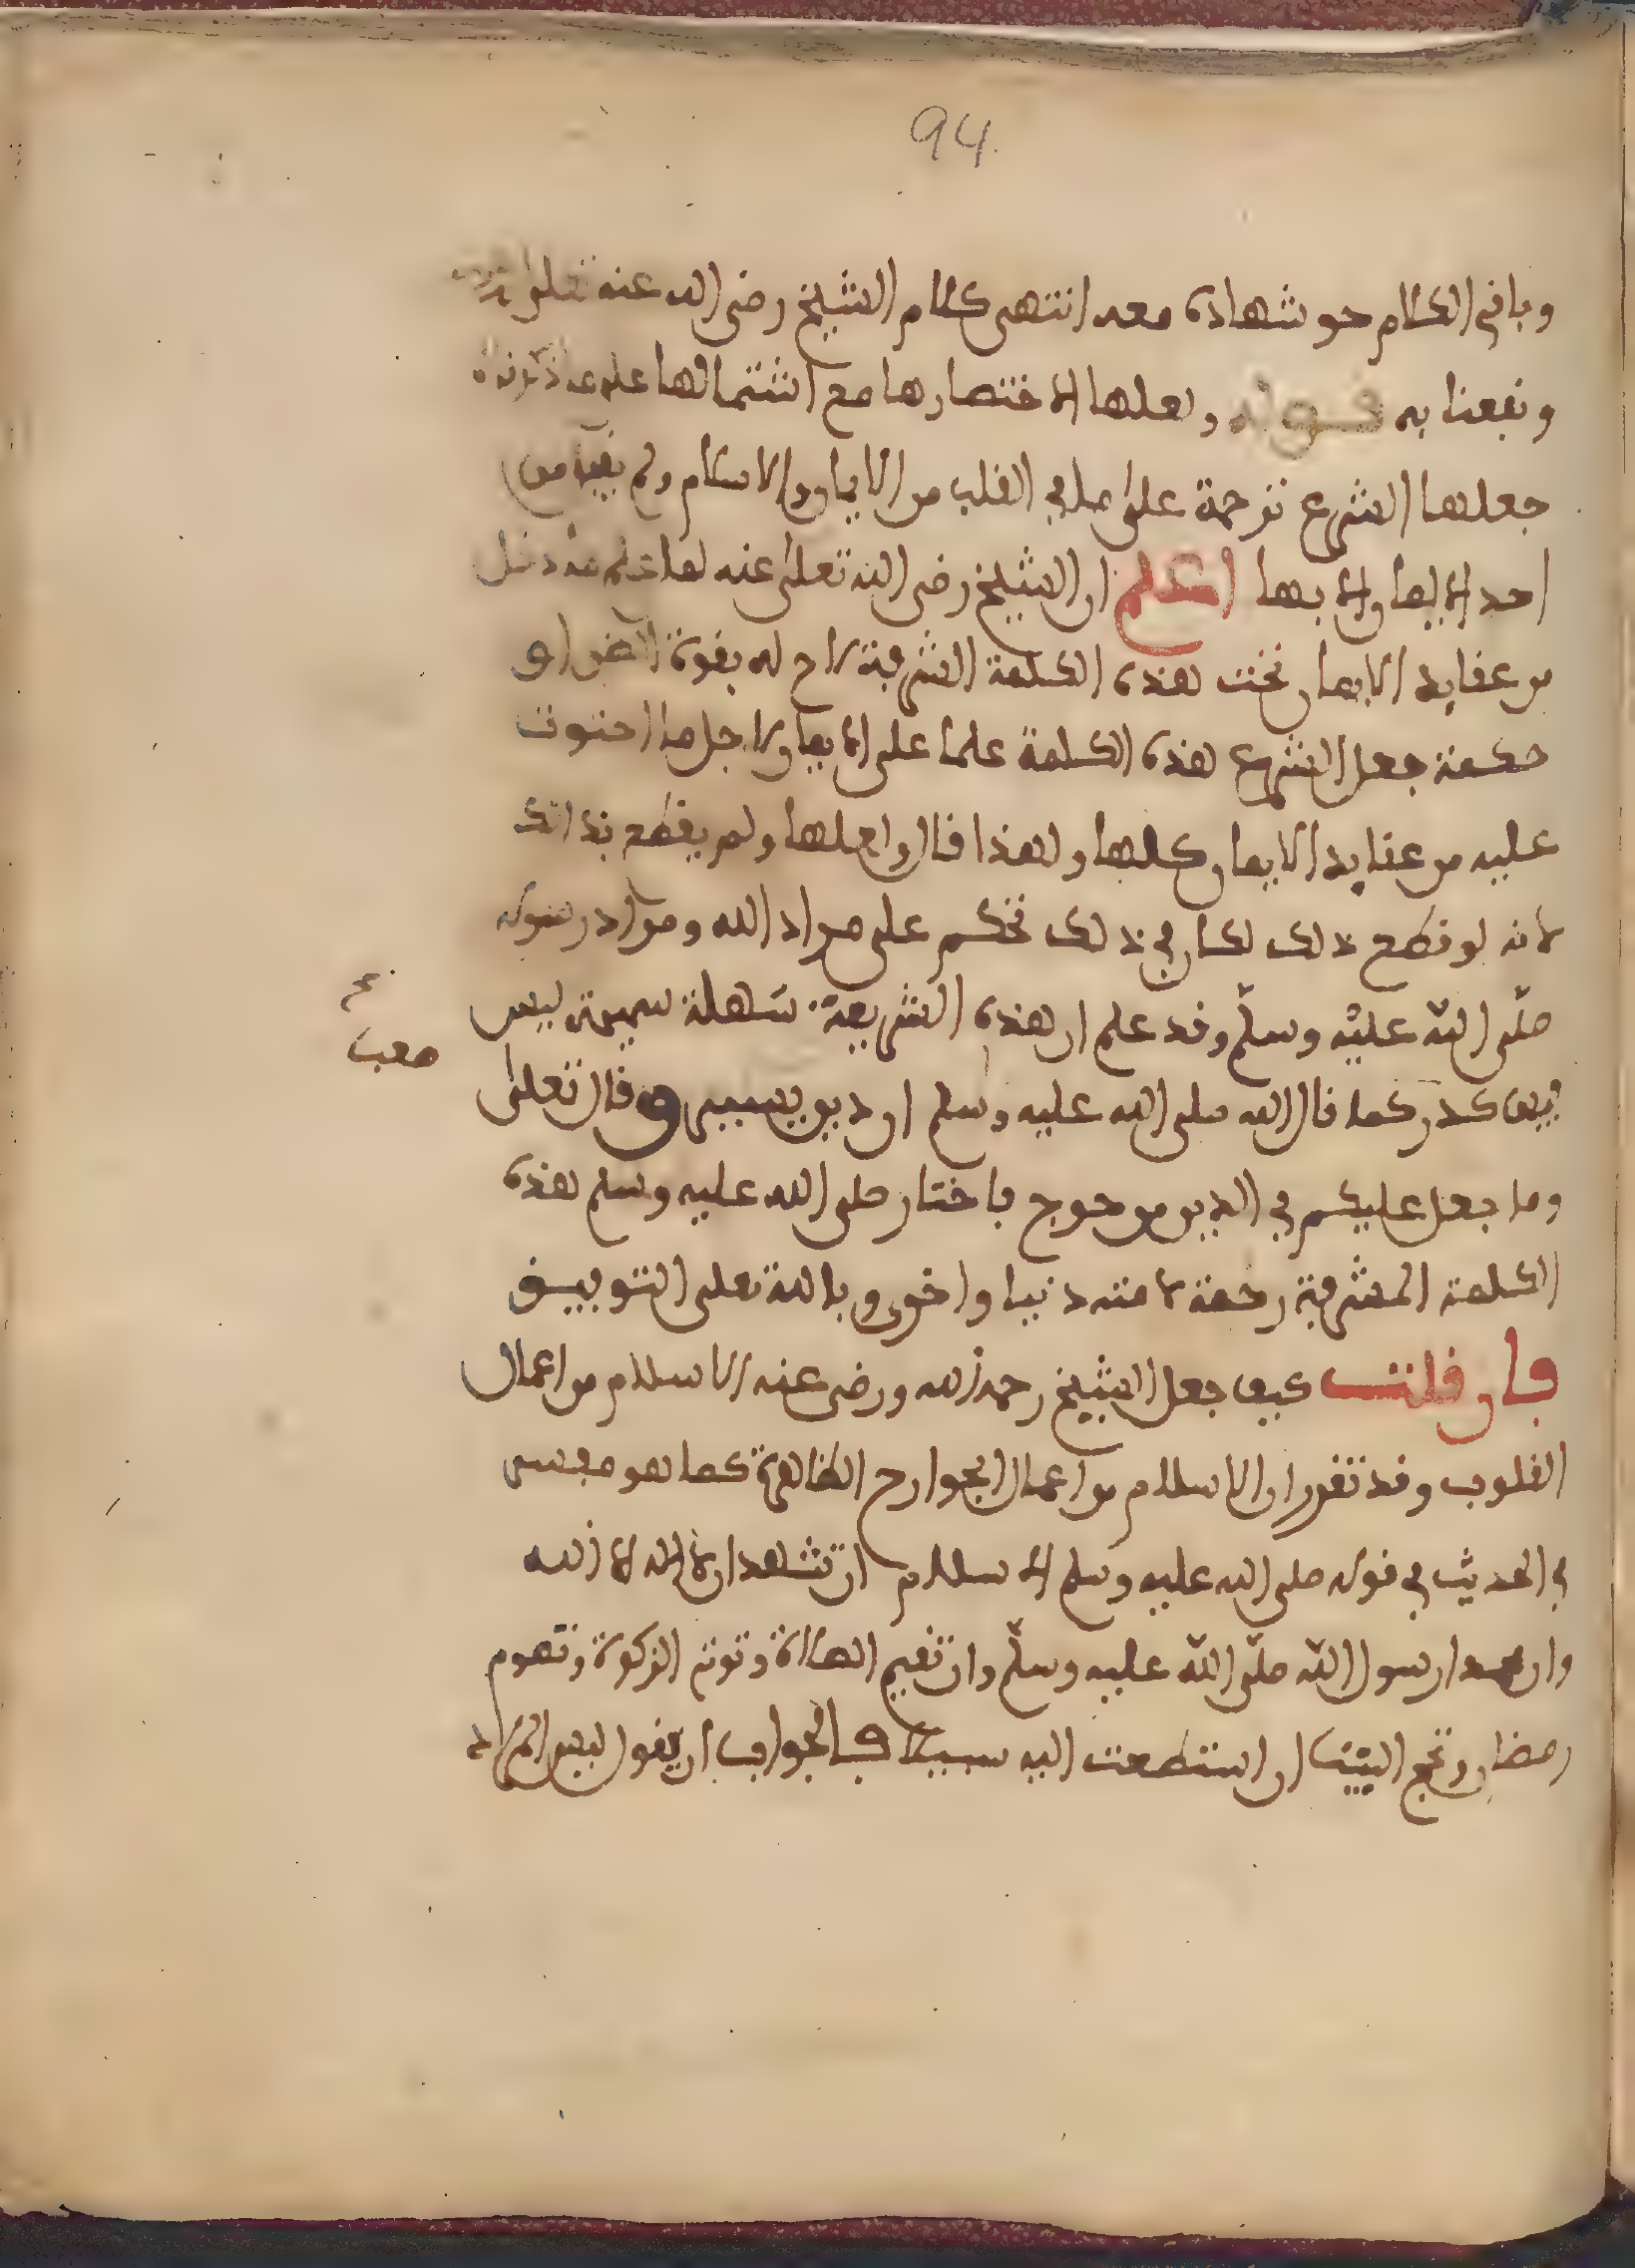 94
وباقي الكلام حو شهادة معه انتهى كلام الشيخ رضي الله عنه تعلى
ونفعنا به قوله ولعلها لاختصارها مع اشتمالها على ما ذكرناه
جعلها الشرع ترجمة على ما في القلب من الايمان والاسلام ولم يقبل من
احد الايمان الا بها اعلم ان الشيخ رضي الله تعلى عنه لما علم ما دخل
من عقايد الايمان تحت هذه الكلمة الشرفية لاح له بقوة الظن ان
حكمة جعل الشرع هذه الكلمة علما على الايمان لاجل ما احتوت
عليه من عقايد الايمان كلها ولهذا قال ولعلها ولم يقطع بذالك
لانه لو قطع ذلك لكان في ذلك تحكم على مراد الله ومراد رسوله
صلى الله عليه وسلم وقد علم ان هذه الشريعة سهلة سميحة ليس
صعب
فيها كدر كما قال الله صلى الله عليه وسلم ان دين يسير وقال تعلى
وما جعل عليكم في الدين من حرج فاختار صلى الله عليه وسلم هذه
الكلمة المشرفية رحمة لامته دنيا واخرى وبالله تعلى التوفيق
فان قلت كيف جعل الشيخ رحمه الله ورضي عنه الاسلام من اعمال
القلوب وقد تقرر ان الاسلام من اعمال الجوارح الظاهرة كما هو مفسر
في الحديث في قوله صلى الله عليه وسلم الاسلام ان تشهد ان لا اله الا الله
وان محمدا رسول الله صلى الله عليه وسلم وان تقيم الصلاة وتوتي الزكوة وتصوم
رمضان وتحج البيت ان استطعت اليه سبيلا فالجواب ان يقول ليس المراد